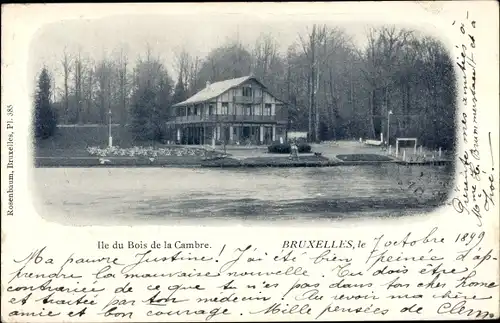 Rosenbaum, Bruxelles, Pl. 385
Ile du Bois de la Cambre.
BRUXELLES, le 7 octobre 1899
Ma pauvre Justine! J'ai été bien peinée d'ap-
prendre la mauvaise nouvelle. Tu dois être
contrariée de ce que tu n'es pas dans ton chez home
et traitée par ton medecin. Au revoir ma chère
amie et bon courage. Mille pensées de Clem
mes amitiés à
Me